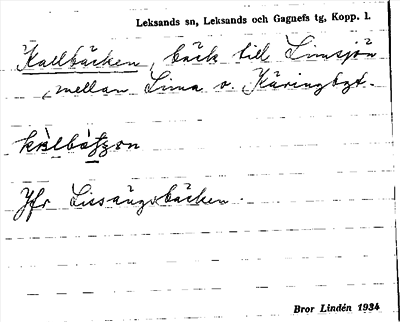 Leksands sn, Leksands och Gagnefs tg, Kopp. l.
Kallbäcken, bäck till Limsjön
mellan Lima o. Käringbyt.
Jfr Lissängsbäcken.
Bror Lindén 1934